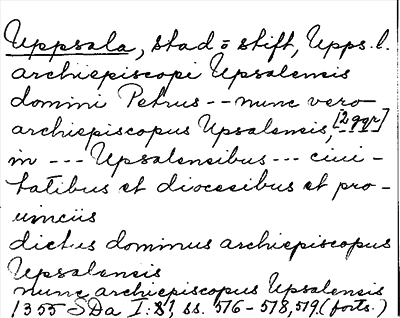 Uppsala, stad o stift, Upps. l.
archiepiscopi Upsalensis
domini Petrus -- nunc vero
archiepiscopus Upsalensis, [2 ggr]
in --- Upsalensibus --- ciui-
tatibus et diocesibus et pro-
uinciis
dictus dominus archiepiscopus
Upsalensis
nunc archiepiscopus Upsalensis
1355 SDa I:81, ss. 576-578, 579, (forts.)